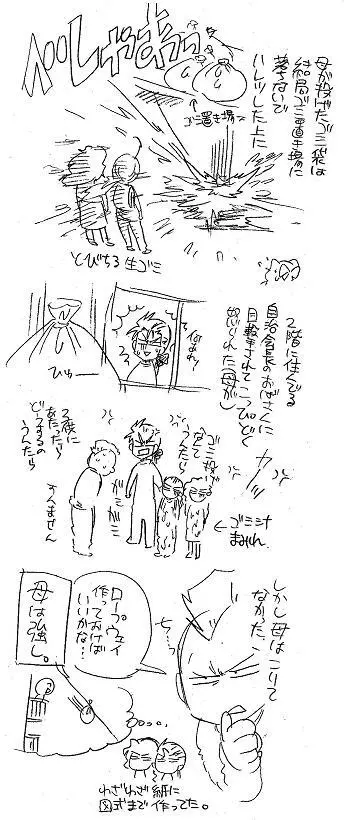 べしゃあっ
母が投げたゴミ袋は
結局ゴミ置き場に
落ちないで
ハレツした上に
ゴミ置き場
とびちる生ゴミ
2階に住んでる
自治会長のおばさんに
目撃されてこっぴどく
怒られた(母が)
ひゅー
ゴミ投げ
すて
うんたら
ガミ
ガミ
2歳に
あたったら
どうするの
うんたら
すんません
←ゴミ汁
まみれ
しかし母はこりて
なかった、
ロープウェイ
作っておけば
いいかな…
母は強し。
わざわざ紙に
図式まで作ってた。